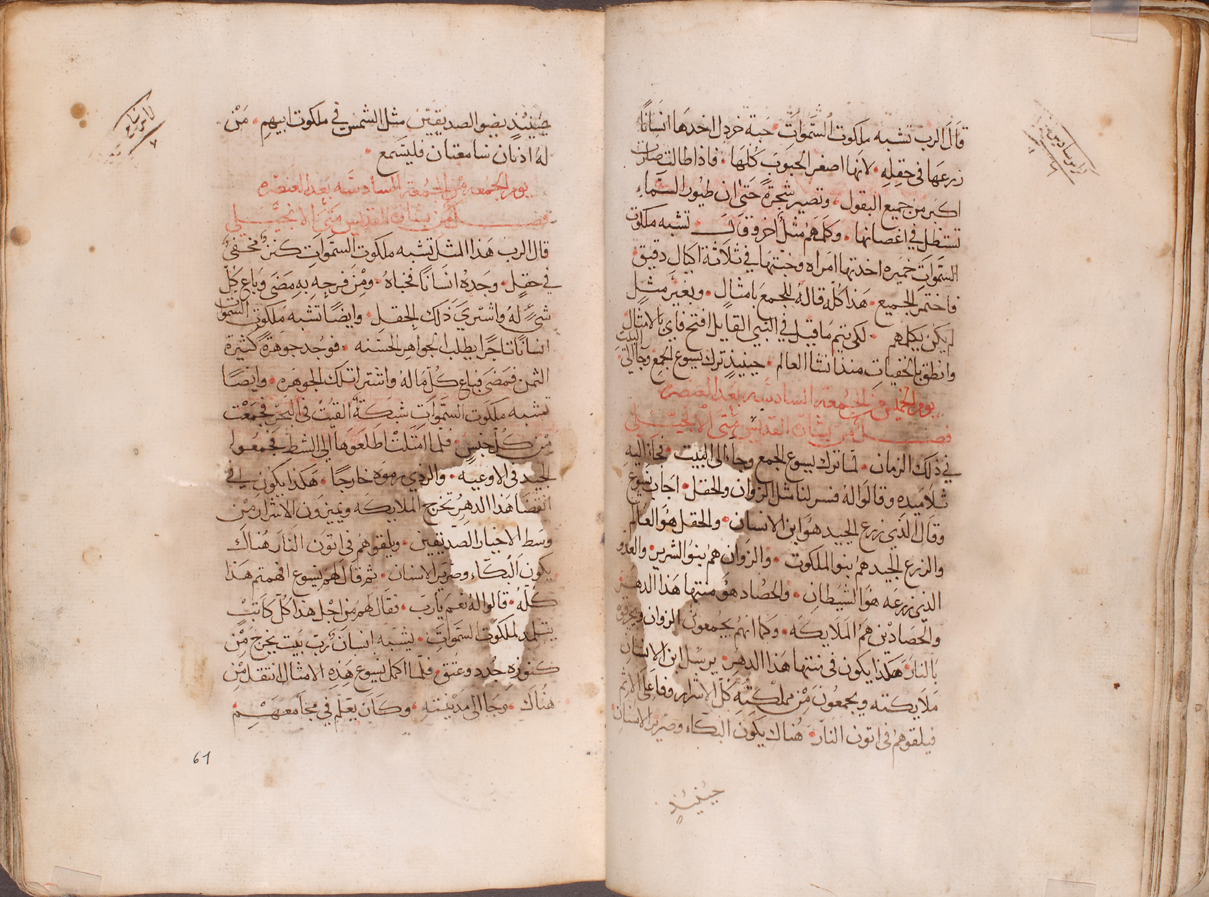 قال الرب تشبه ملكوت السموات حبة خردل اخدها انسانًا
زرعها في حقله • لانها اصغر الحبوب كلها • فاذا طالت صارت
اكبر من جميع البقول • وتصير شجرة حتى ان طيور السماء
تستظل في اغصانها • وكلمهم مثل اخر وقال • تشبه ملكوت
السموات خميره اخدتها امراه وخبتها في ثلاثة اكيال دقيق •
فاختمر الجميع • هدا كله قاله للجمع بامثال • وبغير مثل
لم يكن يكلمهم • لكي يتم ما قيل في النبي القايل افتح فاي بالامثال
وانطق بالخفيات مند انشا العالم • حينيدٍ ترك يسوع الجمع وجا الي البيت
يوم الخميس من الجمعه السادسه بعد العنصره
فصل من بشارة القديس متي الانجيلي
في دلك الزمان • لما ترك يسوع الجمع وجا الي البيت • فجا اليه
تلاميده وقالوا له فسر لنا مثل الزوان والحقل • اجاب يسوع
وقال الدي زرع الجيد هو ابن الانسان • والحقل هو العالم
والزرع الجيد هم بنو الملكوت • والزوان هم بنو الشرير • والعدو
الدي زرعه هو الشيطان • والحصاد هو منتها هدا الدهر
والحصادين هم الملايكه • وكما انهم يجمعون الزوان
بالنار • هكدا يكون في منتها هدا الدهر • يرسل ابن الانسان
ملايكته ويجمعون من مملكته كل الاشرار وفاعلي الاثم
فيلقوهم في اتون النار • هناك يكون البكاء وصرير الاسنان
حينيدٍ
حينيدٍ يضو الصديقين مثل الشمس في ملكوت ابيهم • من
له ادنان سامعتان فليسمع •
يوم الجمعه من الجمعة السادسه بعد العنصره
فصل من بشارة القديس متي الانجيلي
قال الرب هدا المثل تشبه ملكوت السموات كنز مخفيٌ
في حقل • وجده انسانًا فخباه • ومن فرحه به مضى وباع كل
شيٍ له واشتري دلك الحقل • وايضًا تشبه ملكوت السموات
انسانًا تاجرًا يطلب الجواهر الحسنه • فوجد جوهرة كثيرة
الثمن فمضى فباع كل ماله واشترا تلك الجوهره • وايضًا
تشبه ملكوت السموات شبكة القيت في البحر فجمعت
من كل جنس • فلما امتلت اطلعوها الي الشط فجمعوا
الجيد في الاوعيه • والردي رموه خارجًا • هكدا يكون في
انقضا هدا الدهر تخرج الملايكه ويميزون الاشرار من
وسط الاخيار الصديقين • ويلقوهم في اتون النار هناك
يكون البكاء وصرير الاسنان • ثم قال لهم يسوع افهمتم هدا
كله • قالوا له نعم يا رب • فقال لهم من اجل هدا كل كاتبٍ
يتلمد لملكوت السموات • يشبه انسان رب بيت يخرج من
كنوزه جدد وعتق • فلما اكمل يسوع هده الامثال انتقل من
هناك • وجا الي مدينته • وكان يعلم في مجامعهم •
61